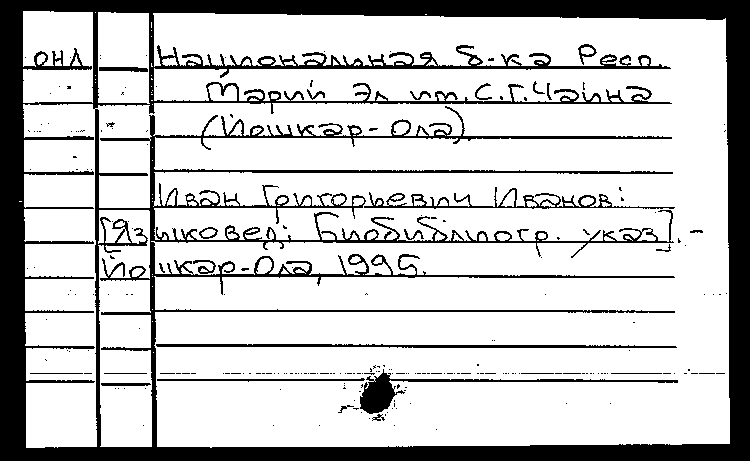 онл Национальная б-ка Респ.
Марий Эл им. С.Г. Чавйна
(Йошкар-Ола).
Иван Григорьевич Иванов:
[Языковед; Биобиблиогр. указ]. -
Йошкар-Ола, 1995.